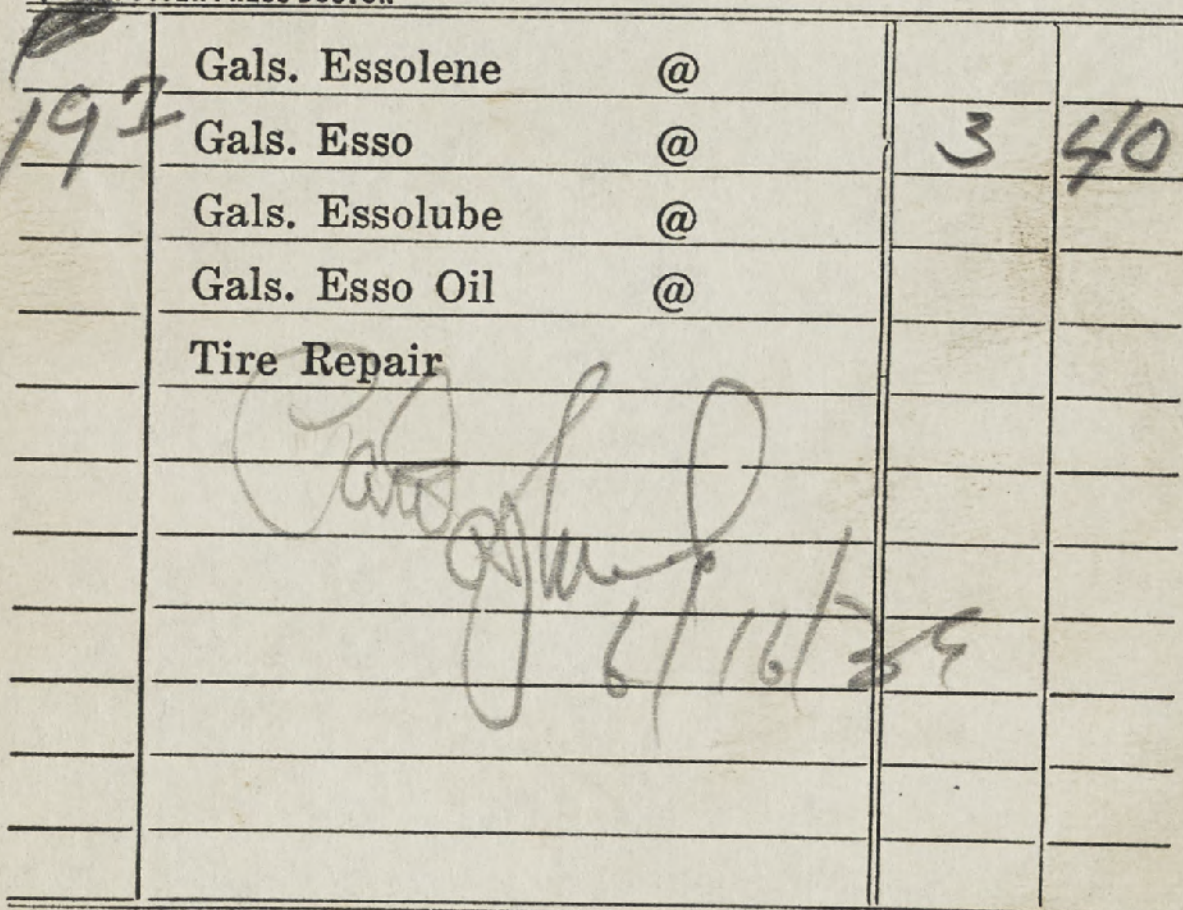 Gals. Essolene @
Gals. Esso @ 3 40
Gals. Essolube @
Gals. Esso Oil @
Tire Repair
6/16/